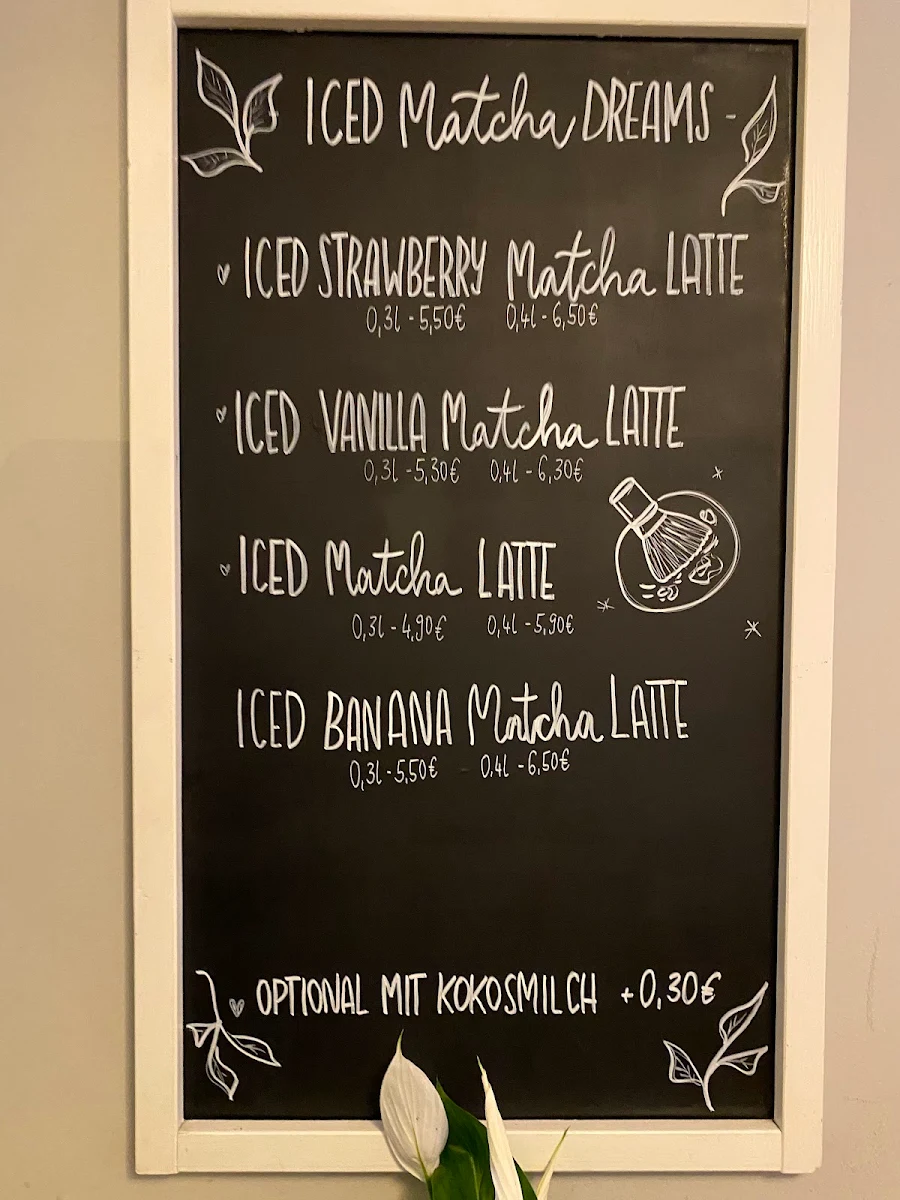 ICED Matcha DREAMS -
ICED STRAWBERRY Matcha LATTE
0,3l - 5,50€ 0,4l - 6,50€
ICED VANILLA Matcha LATTE
0,3l - 5,30€ 0,4l - 6,30€
ICED Matcha LATTE
0,3l - 4,90€ 0,4l - 5,90€
ICED BANANA Matcha LATTE
0,3l - 5,50€ 0,4l - 6,50€
OPTIONAL MIT KOKOSMILCH +0,30€